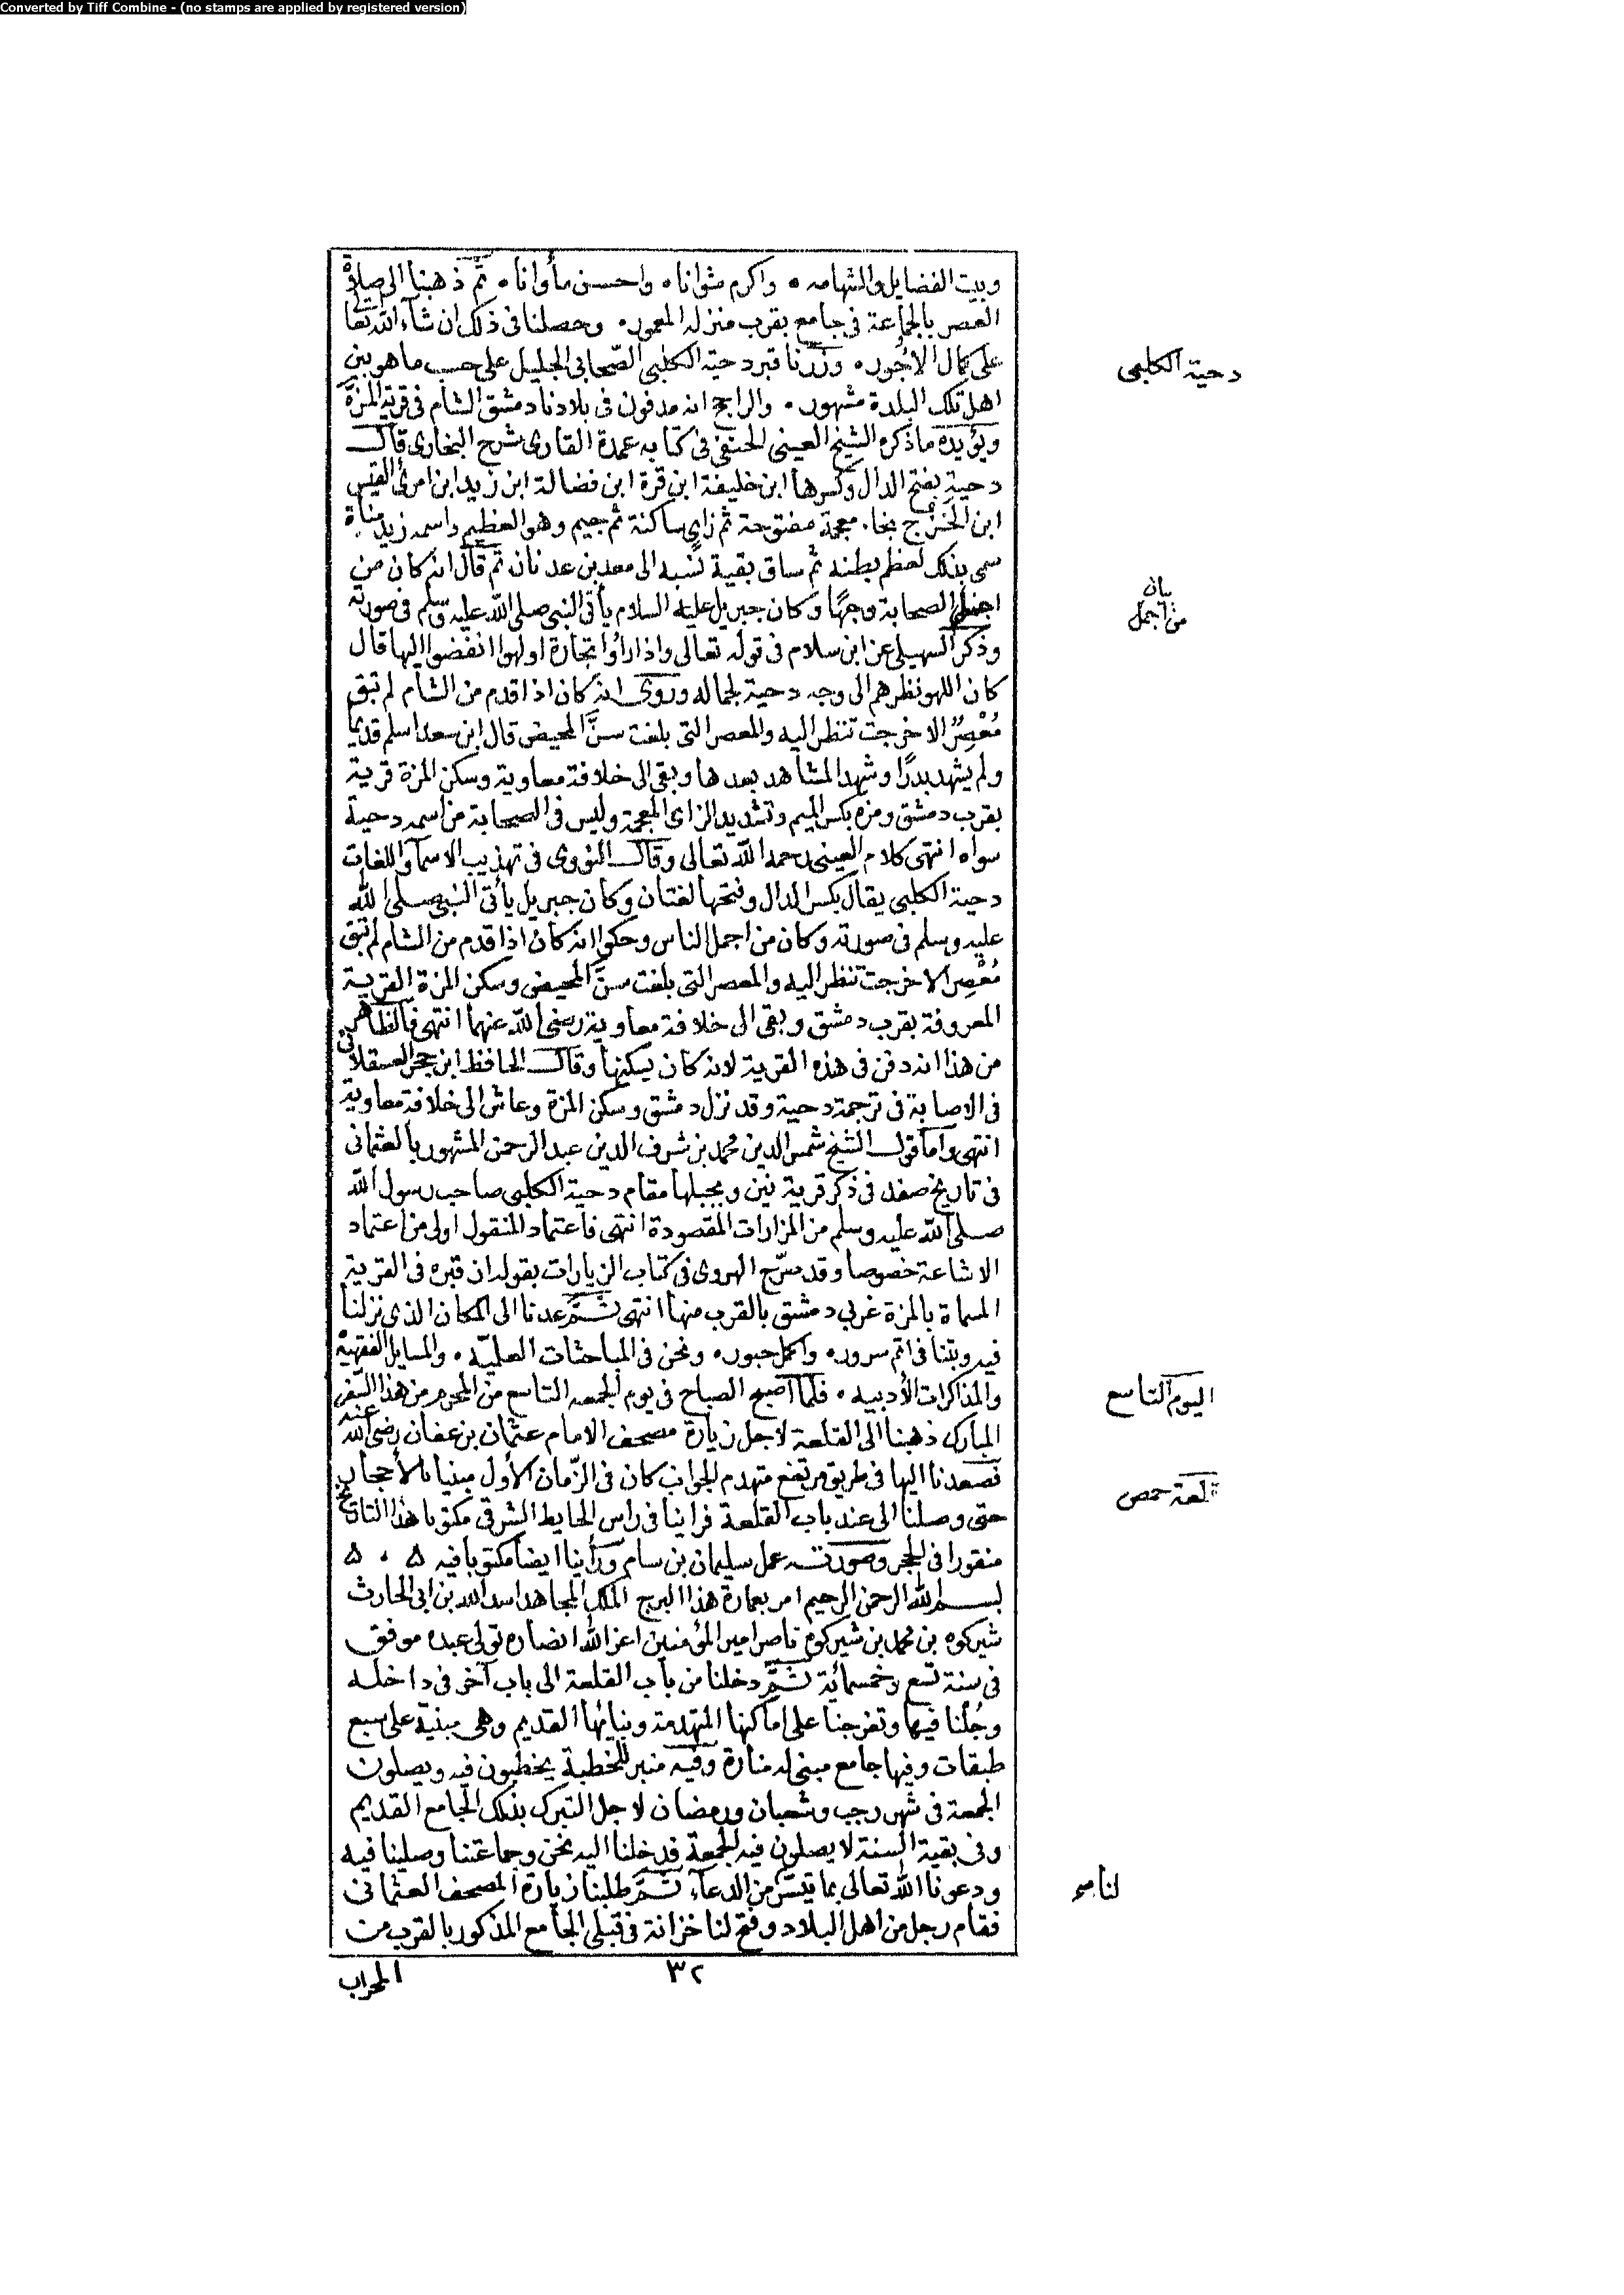 Converted by Tiff Combine - (no stamps are applied by registered version)
وبيت الفضايل والشهامه ٠ واكرم مثوانا ٠ واحسن مأوانا ٠ ثم ذهبنا الى صلاة
العصر بالجماعة فى جامع بقرب منزله المعمور ٠ وحصلنا فى ذلك ان شآء الله تعالى
على كمال الأجور ٠ وزرنا قبر دحية الكلبى الصّحابى الجليل على حسب ما هو بين
دحية الكلبى
اهل تلك البلدة مشهور ٠ والراجح انه مدفون فى بلادنا دمشق الشام فى قرية المزة
ويؤيده ما ذكره الشيخ العينى الحنفى فى كتابه عمدة القارى شرح البخارى قال
دحية بفتح الدال وكسرها ابن خليفة ابن فروة ابن فضالة ابن زيد ابن امرئ القيس
ابن الخزرج بخاء معجمة مفتوحة ثم زاي ساكنة ثم جيم وهو العظيم واسمه زيد مناة
سمى بذلك لعظم بطنه ثم ساق بقية نسبه الى معد بن عدنان ثم قال انه كان من
اجمل الصحابة وجهًا وكان جبريل عليه السلام يأتى النبى صلى الله عليه وسلم فى صورته
بيان
من اجمل
وذكر السهيلى عن ابن سلام فى قوله تعالى واذا راوا تجارة او لهوا انفضوا اليها قال
كان اللهو نظرهم الى وجه دحية لجماله وروى انه كان اذا قدم من الشام لم تبق
مُعْصِرٌ الا خرجت تنظر اليه والمعصر التى بلغت سنَّ المحيض قال ابن سعد اسلم قديما
ولم يشهد بدرًا وشهد المشاهد بعدها وبقى الى خلافة معاوية وسكن المزة قرية
بقرب دمشق ومزه بكسر الميم وتشديد الزاى المعجمة وليس فى الصحابة من اسمه دحية
سواه انتهى كلام العينى رحمه الله تعالى وقال النووى فى تهذيب الاسمآ واللغات
دحية الكلبى يقال بكسر الدال وفتحها لغتان وكان جبريل يأتى النبى صلى الله
عليه وسلم فى صورته وكان من اجمل الناس وحكوا انه كان اذا قدم من الشام لم تبق
مُعْصِر الا خرجت تنظر اليه والمعصر التى بلغت سنَّ المحيض وسكن المزة القرية
المعروفة بقرب دمشق وبقى الى خلافة معاوية رضى الله عنهما انتهى فالظاهر
من هذا انه دفن فى هذه القرية لانه كان يسكنها وقال الحافظ ابن حجر العسقلانى
فى الاصابة فى ترجمة دحية وقد نزل دمشق وسكن المزة وعاش الى خلافة معاوية
انتهى واما قول الشيخ شمس الدين محمد بن شرف الدين عبد الرحمن المشهور بالعثمانى
فى تاريخ صفد فى ذكر قرية نين وبجبلها مقام دحية الكلبى صاحب رسول الله
صلى الله عليه وسلم من المزارات المقصودة انتهى فاعتماد المنقول اولى من اعتماد
الاشاعة خصوصا وقد صرّح الهروى فى كتاب الزيارات بقوله ان قبره فى القرية
المسماة بالمزة غربي دمشق بالقرب منها انتهى ثم عدنا الى المكان الذى نزلنا
فيه وبتنا فى اتم سرور ٠ واكمل حبور ٠ ونحن فى المباحثات العلميّة ٠ والمسايل الفقهية
والمذاكرات الأدبيه ٠ فلما اصبح الصباح فى يوم الجمعه التاسع من المحرم من هذا السّفر
اليوم التاسع
المبارك ذهبنا الى القلعة لاجل زيارة مصحف الامام عثمان بن عفان رضى الله عنه
فصعدنا اليها فى طريق مرتفع متهدم الجوانب كان فى الزّمان الأول مبنيا بالأحجار
قلعة حمص
حتى وصلنا الى عند باب القلعة فراينا فى راس الحايط الشرقى مكتوبا هذا التاريخ
منقورا فى الحجر وصورته عمل سليمان بن سام ورأينا ايضا مكتوبا فيه
بسم الله الرحمن الرحيم امر بعمارة هذا البرج الملك المجاهد اسد الله بن ابى الحارث
شيركوه بن محمد بن شيركوه ناصر امير المؤمنين اعز الله انصاره تولى عبده موفق
فى سنة تسع وخمسمائة ثم دخلنا من باب القلعة الى باب آخر فى داخله
وجُلْنا فيها وتفرجنا على اماكنها المتهدمة وبنائها القديم وهى مبنية على سبع
طبقات وفيها جامع مبنى له منارة وفيه منبر للخطبة يخطبون فيه ويصلون
الجمعة فى شهر رجب وشعبان ورمضان لاجل التبرك بذلك الجامع القديم
وفى بقية السنة لا يصلون فيه الجمعة فدخلنا اليه نحن وجماعتنا وصلينا فيه
ودعونا الله تعالى بما تيسّر من الدعآء ثم طلبنا زيارة المصحف العثمانى
لنا صح
فقام رجل من اهل البلاد وفتح لنا خزانة فى قبلى الجامع المذكور بالقرب من
٣٢
المحراب